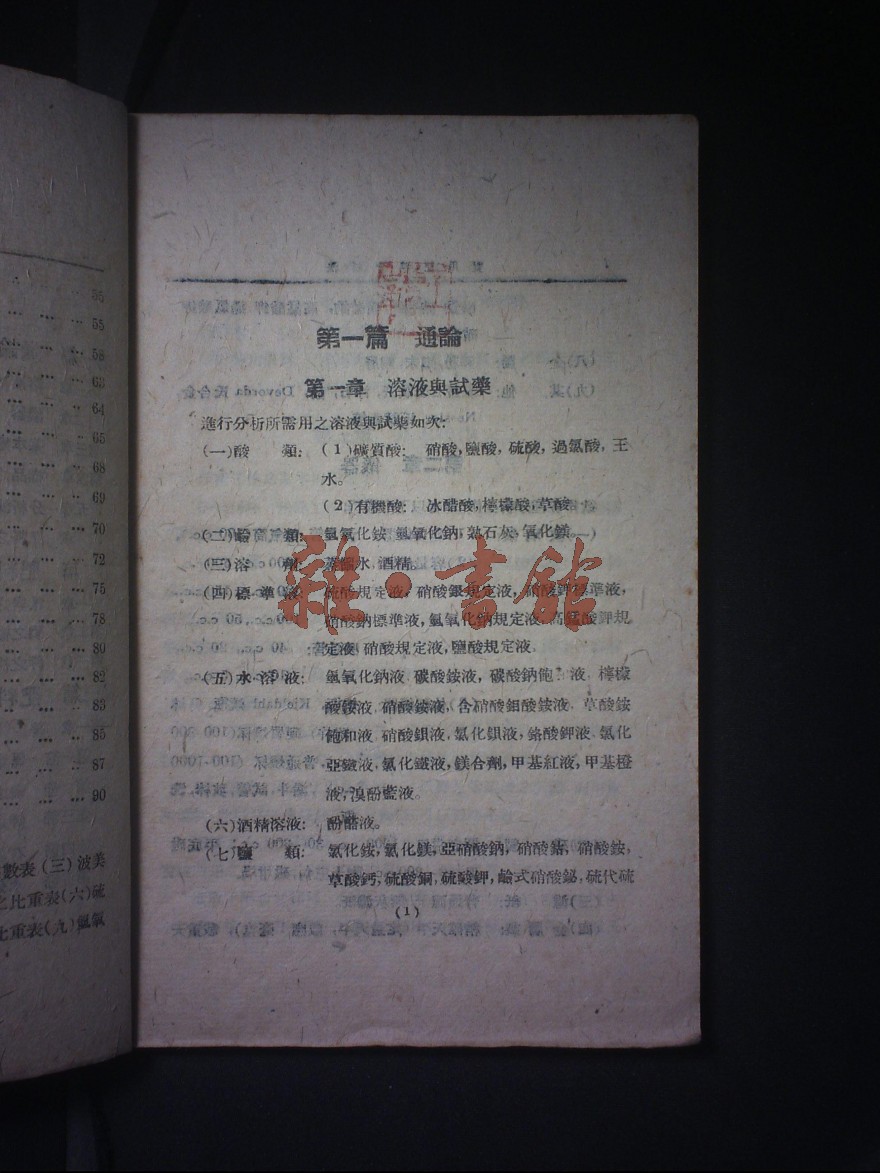 55
55
58
63
64
65
68
69
70
72
75
78
80
82
83
85
87
90
數表(三)波美
比重表(六)硫
比重表(九)氫氧
第一篇 通論
第一章 溶液與試藥
進行分析所需用之溶液與試藥如次:
(一)酸 類: (1)礦質酸: 硝酸,鹽酸,硫酸,過氯酸,王
水。
(2)有機酸: 冰醋酸,檸檬酸,草酸。
(二)鹼 類: 氫氧化銨,氫氧化鈉,熟石灰,氧化鎂。
(三)溶 劑: 蒸餾水,酒精。
(四)標 準 液: 硫酸規定液,硝酸銀規定液,硝酸鉀標準液,
硝酸鈉標準液,氫氧化鈉規定液,高錳酸鉀規
定液,硝酸規定液,鹽酸規定液。
(五)水 溶 液: 氫氧化鈉液,碳酸銨液,碳酸鈉飽 液,檸檬
酸銨液,硝酸銨液,含硝酸鉬酸銨液,草酸銨
飽和液,硝酸鋇液,氯化鋇液,鉻酸鉀液,氯化
亞 液,氯化鐵液,鎂合劑,甲基紅液,甲基橙
液,溴酚藍液。
(六)酒精溶液: 酚 液。
(七)鹽 類: 氯化銨,氯化鎂,亞硝酸鈉,硝酸 ,硝酸銨,
草酸鈣,硫酸銅,硫酸鉀,鹼式硝酸鉍,硫代硫
(1)
雜·書館